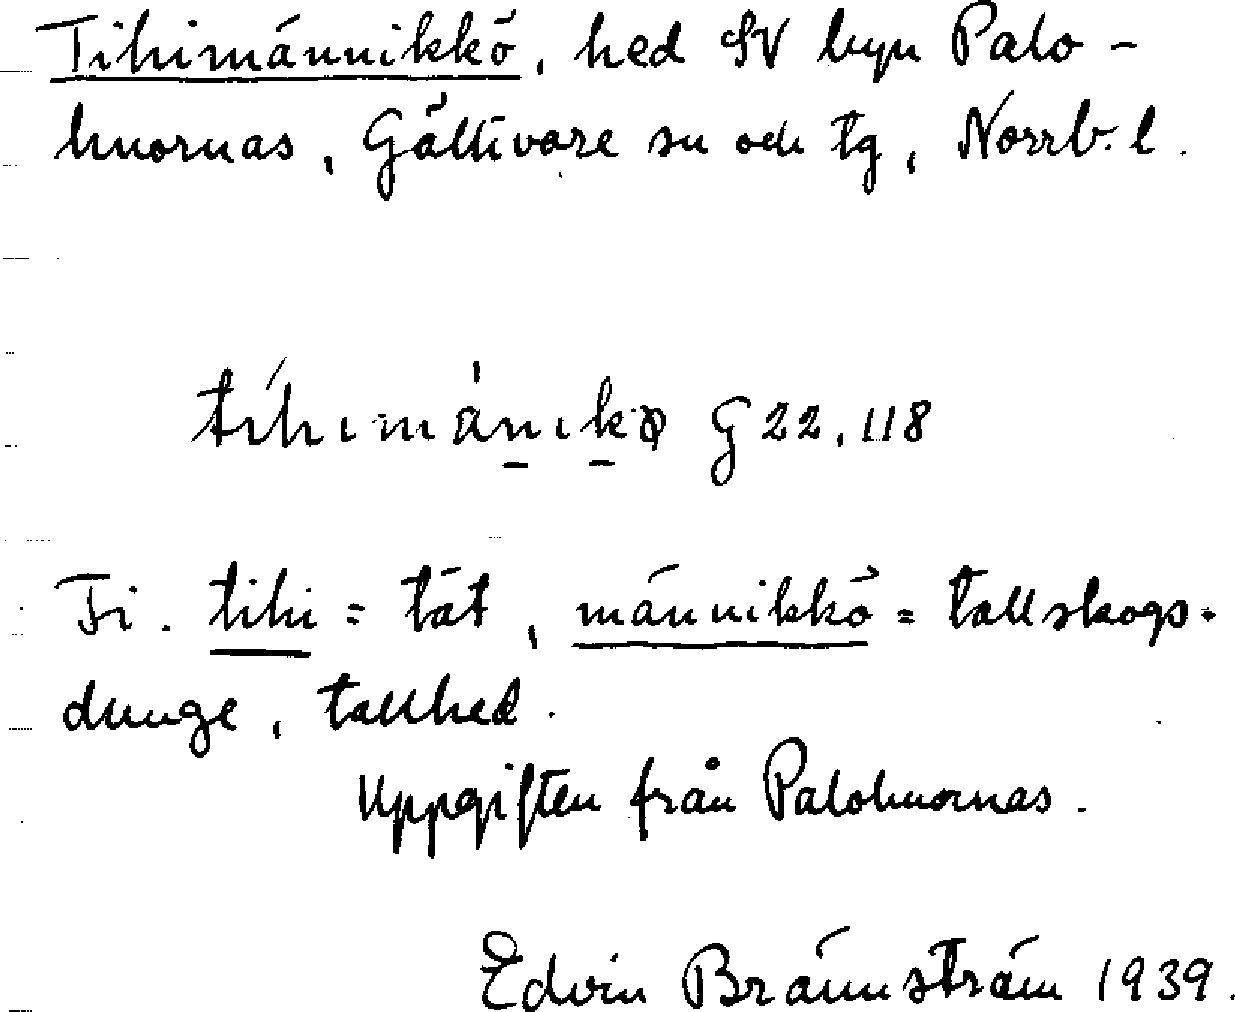 Tihimännikkö, hed SV byn Palo-
huornas, Gällivare sn och tg, Norrb. l.
tíhımánıkø G 22, 118
Fi. tihi = tät, männikkö = tallskogs-
dunge, tallhed.
Uppgiften från Palohuornas.
Edvin Brännström 1939.